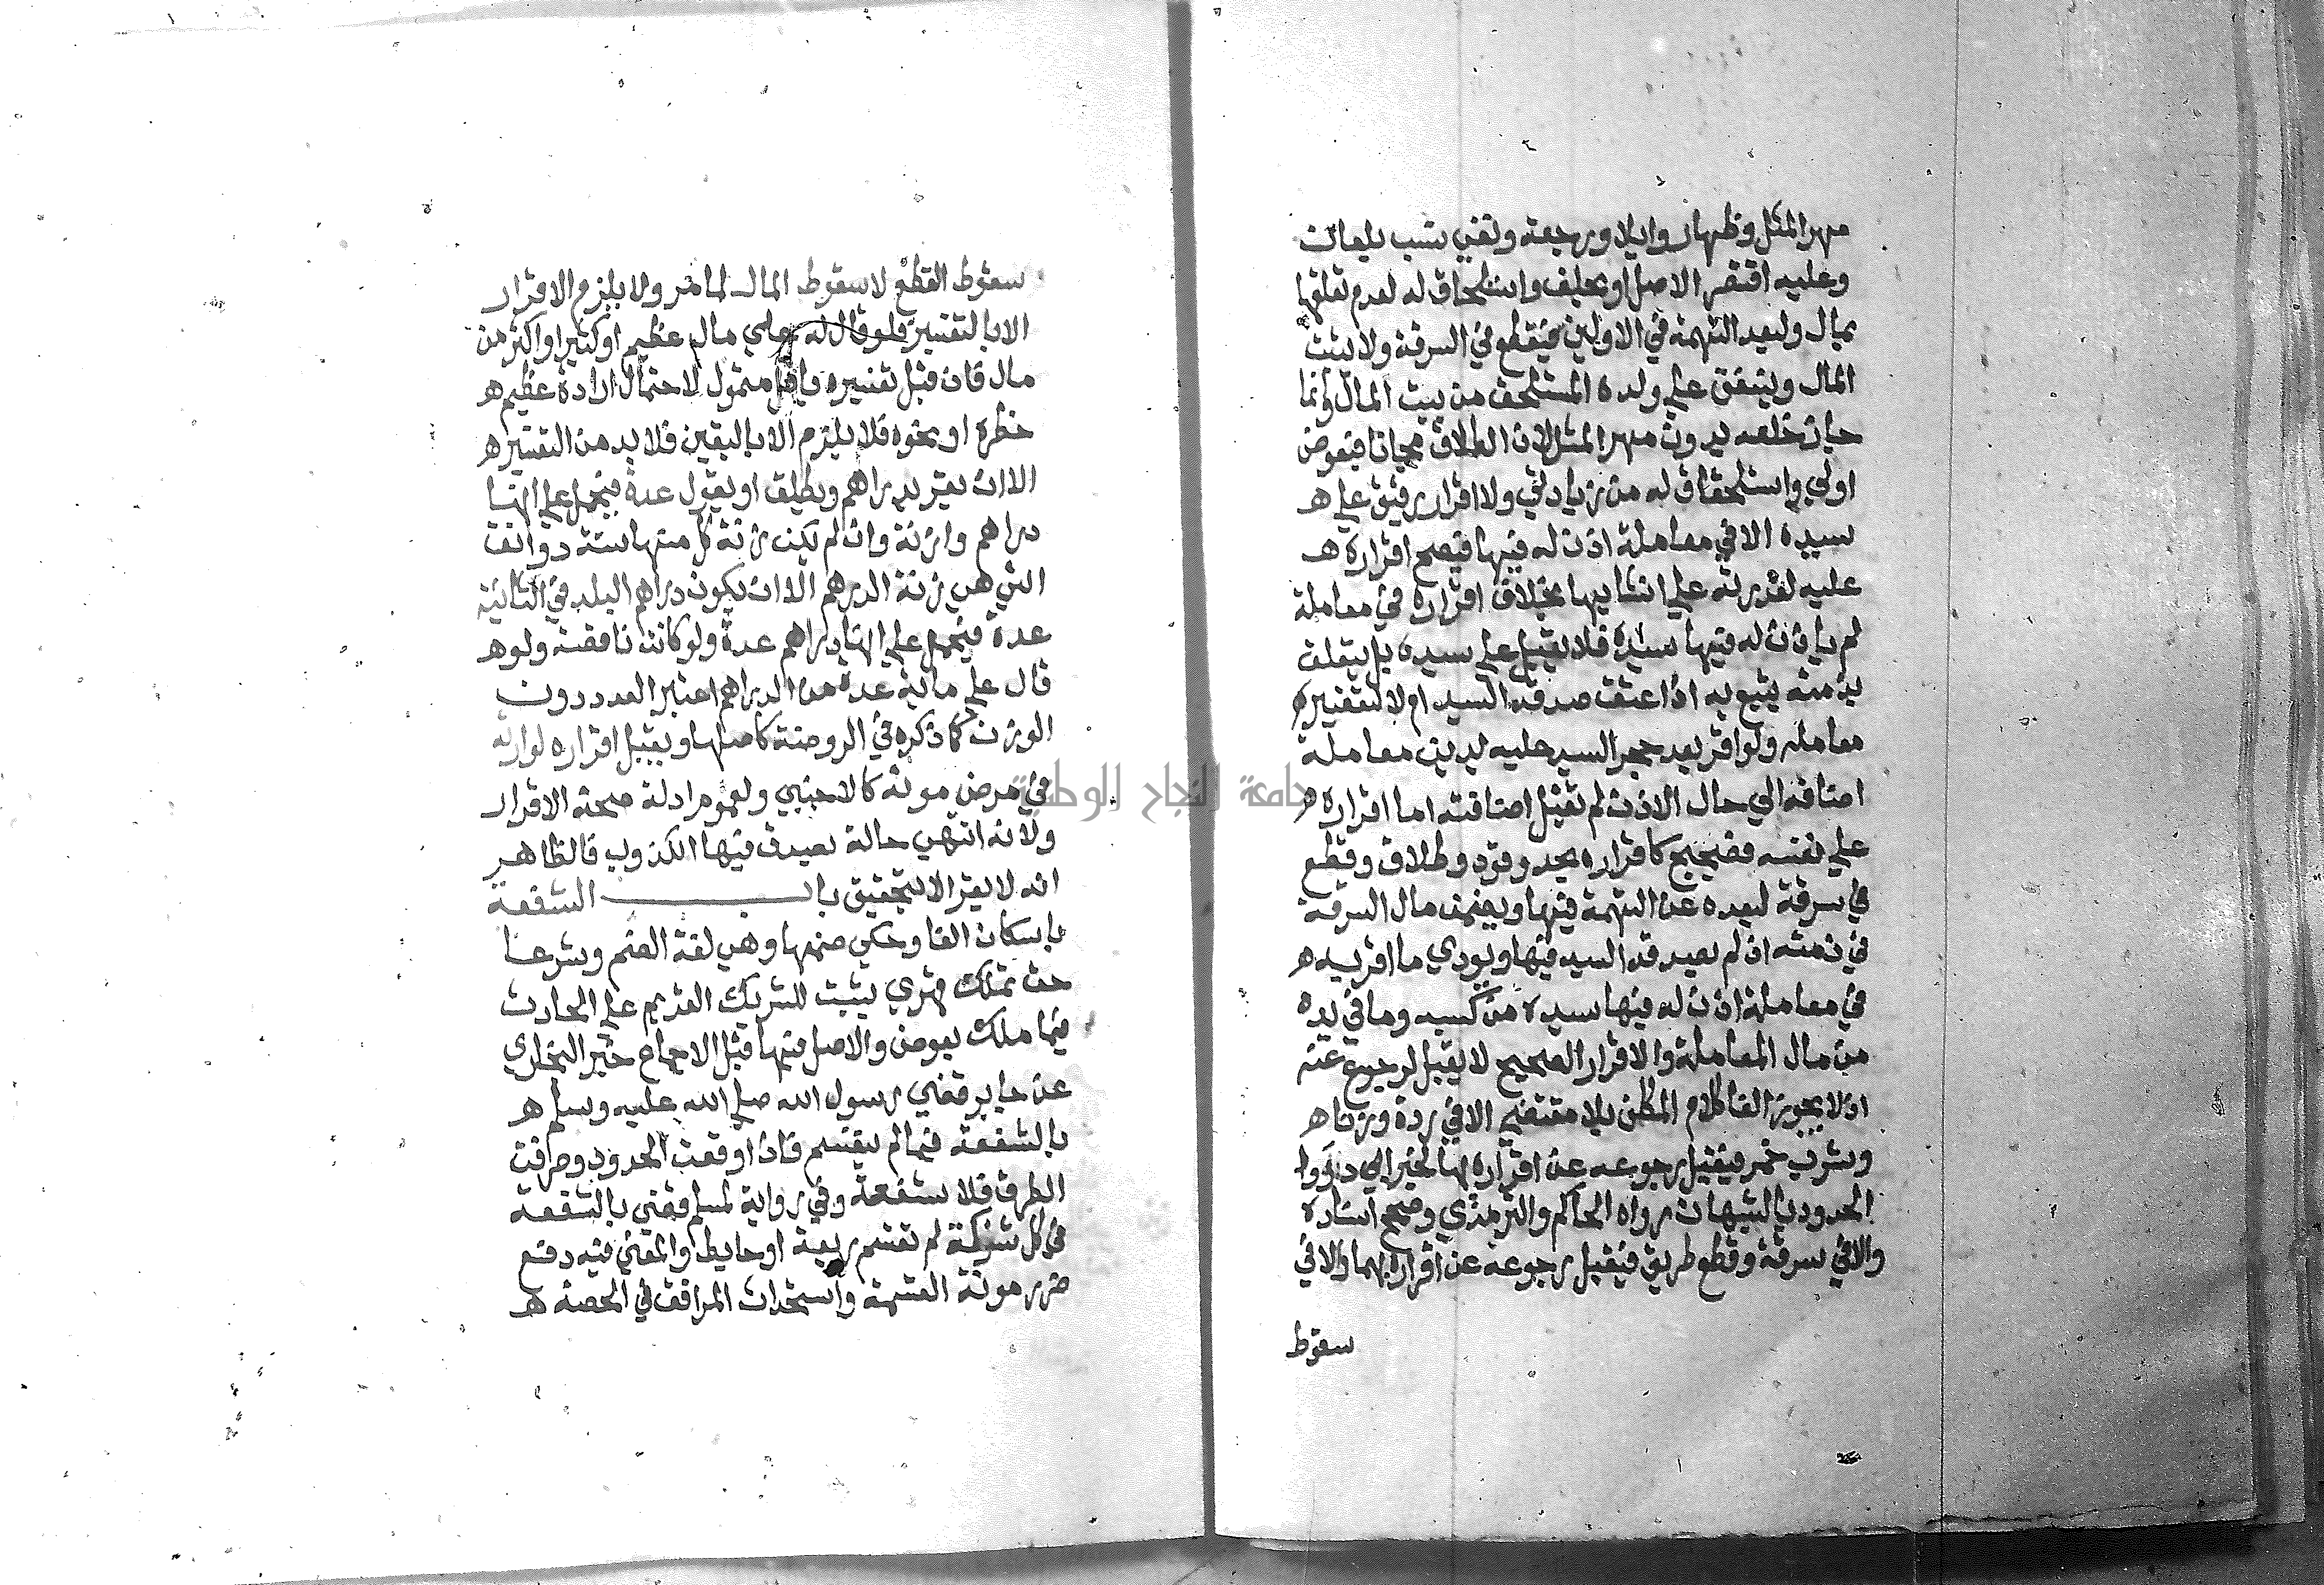 مهر المثل وظهار وايلا ورجعة ونفي نسب بلعان
وعليه اقتصر الاصل او بحلف واستلحاق له لعدم تعلقها
بمال ولبعد التهمة في الاولين فيقطع في السرقة ولا يثبت
المال وينفق علي ولده المستلحق من بيت المال وانما
جاز خلعه بدون مهر المثل لان الطلاق مجانا فبعوض
اولي واستلحقاق له من زيادتي ولا اقرار رقيق علي ه
سيده الا في معاملة اذن له فيها فيصح اقراره ه
عليه لقدرته علي انشايها بخلاف اقراره في معاملة
لم ياذن له فيها سيده فلا يقبل علي سيده بل يتعلق
بذمته يتبع به اذا اعتق صدقه السيد ام لا لتقصيره
معامله ولو اقر بعد حجر السيد عليه بدين معاملة
اضافه الي حال الاذن لم تقبل اضافته اما اقراره ه
علي نفسه فصحيح كاقراره بحد وقود وطلاق وقطع
في سرقة لبعده عن التهمة فيها ويضمن مال السرقة
في ذمته ان لم يصدقه السيد فيها ويودي ما اقر به ه
في معاملة اذن له فيها سيده من كسبه وما في يده
من مال المعاملة والاقرار الصحيح لا يقبل لرجوع عنه
اذ لا يجوز الغا كلام المكلف بلا مقتضي الا في ردة وزنا ه
وشرب خمر فيقبل رجوعه عن اقراره بها لخبر ادرووا
الحدود بالشبهات رواه الحاكم والترمذي وصحح اسناده
والا في سرقة وقطع طريق فيقبل رجوعه عن اقراره بهما والا في
سقوط
سقوط القطع لا سقوط المال لما مر ولا يلزم الاقرار
الا بالتفسير فلو قال له علي مال عظيم او كثير او اكثر من
مال فلان قبل تفسيره باقل متمول لاحتمال ارادة عظيم ه
خطره او نحوه فلا يلزم الا باليقين فلا بد من التفسير ه
الا ان يقر بدراهم ويطلق او يقول عدة فيحمل علي انها
دراهم وازنة وان لم يكن زنة كل منها ستة دوانق
التي هي زنة الدرهم الا ان يكون دراهم البلد في الثانية
عدة فيحمل علي انها دراهم عدة ولو كانت ناقصة ولو ه
قال علي ماية عدد من الدراهم اعتبر العدد دون
الوزن كما ذكره في الروضة كاصلها ويقبل اقراره لوارثه
في مرض موته كالاجنبي ولعموم ادلة صحة الاقرار
ولانه انتهي حالة يصدق فيها الكذوب فالظاهر
انه لا يقر الا بتحقيق باب الشفعة
باسكان الفا وحكي ضمها وهي لغة الضم وشرعا
حق تملك قهري يثبت للشريك القديم علي الحادث
فيما ملك بعوض والاصل فيها قبل الاجماع خبر البخاري
عن جابر قضي رسول الله صلي الله عليه وسلم ه
بالشفعة فيما لم يقسم فاذا وقعت الحدود وصرفت
الطرق فلا شفعة وفي رواية لمسلم قضي بالشفعة
في كل شركة لم تقسم ربعة او حايط والمعني فيه دفع
ضرر مونة القسمة واستحداث المرافق في الحصة ه